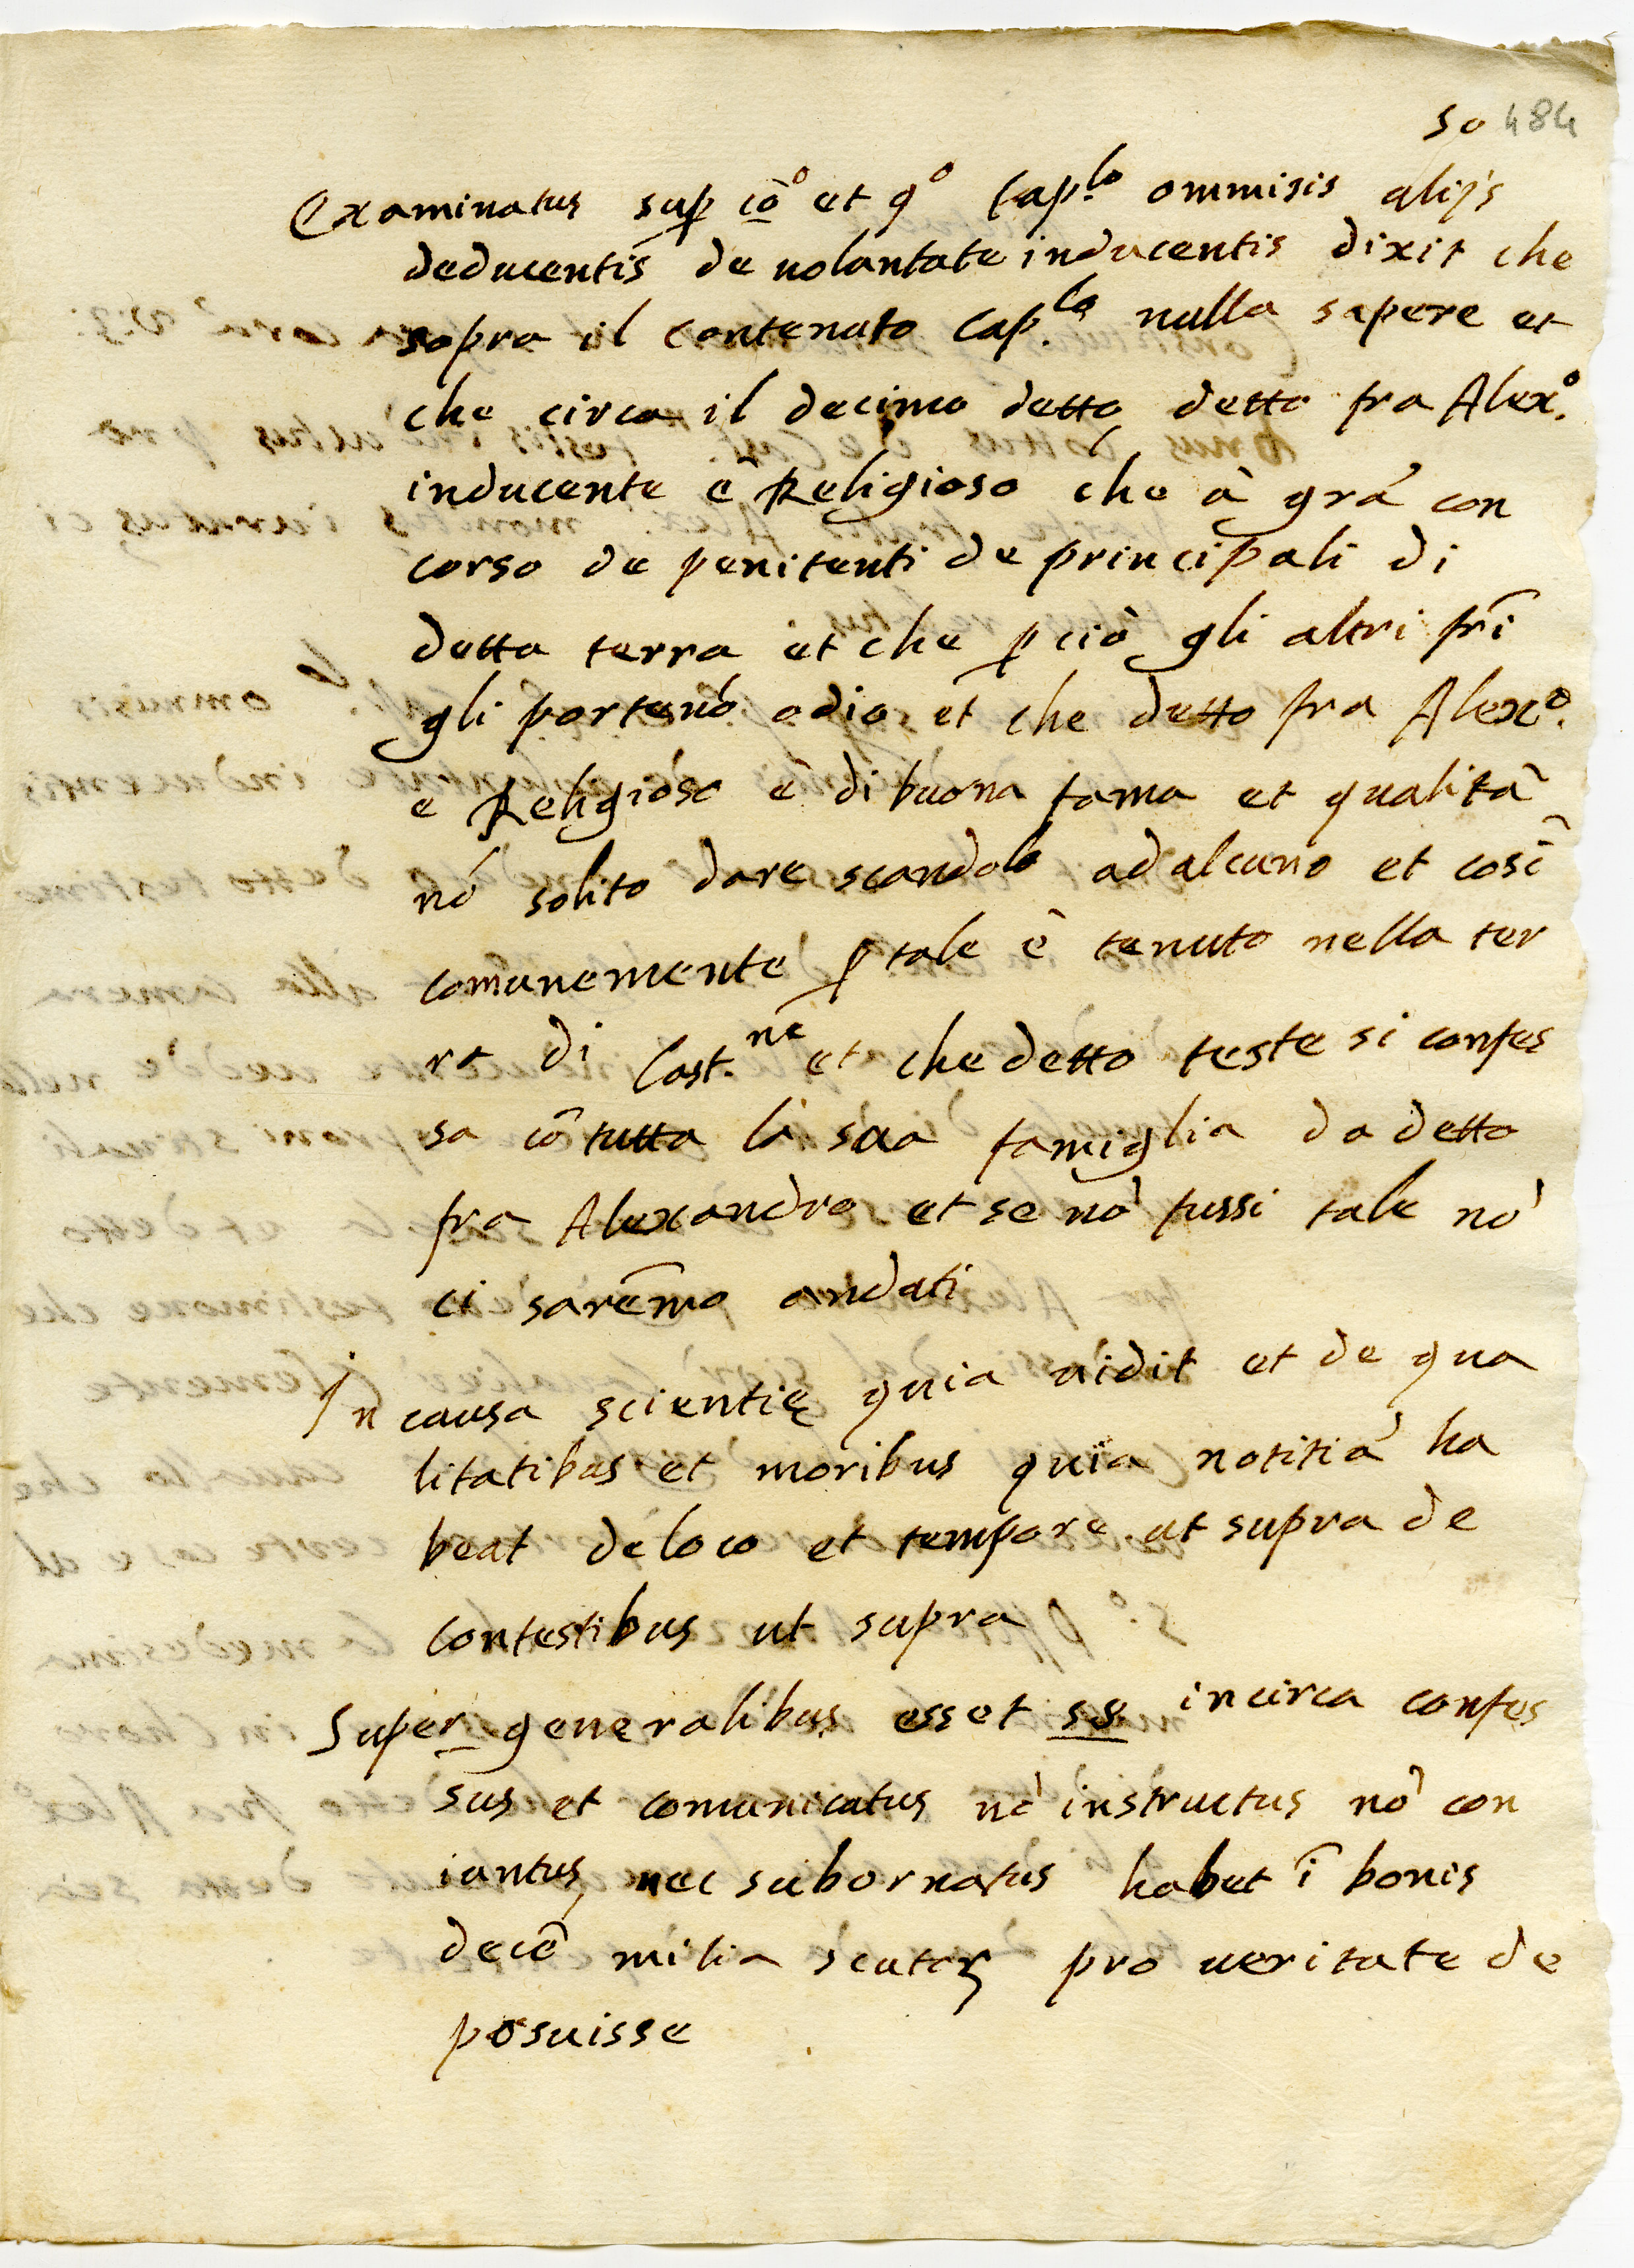 50 484
Examinatus sup iõ.º et 9º Cap.lo ommisis alijs
deducentis de uoluntate inducentis dixit che
sopra il contenuto Cap.lo nulla sapere et
che circa il decimo detto detto fra Alex.º
inducente è Religioso che à grã con
corso de penitenti de principali di
detta terra et che p ciò gli altri frĩ
gli portenõ odio et che detto fra Alexº.
e Religioso è di buona fama et qualità
nõ solito dare scandolo ad alcuno et così
comunemente p tale è tenuto nella ter
ra di Cast.ne et che detto teste si confes
sa cõ tutta la sua famiglia da detto
fra Alexandro et se nõ fussi tale nõ
ci sarẽmo andati
In causa scientię quia uidit et de qua
litatibus et moribus quia notitiã ha
beat de loco et tempore ut supra de
contestibus ut supra
Super generalibus esset ss. incirca confes
sus et comunicatus nõ instructus nõ con
iuntus, nec subornatus habet ĩ bonis
decẽ milia scutoꝝ pro ueritate de
posuisse